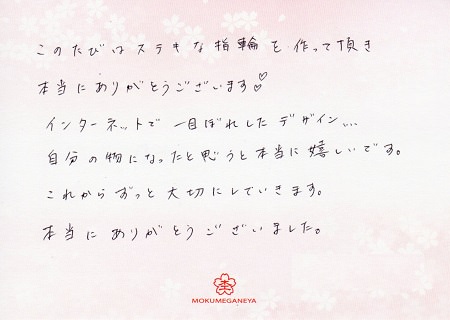 このたびはステキな指輪を作って頂き
本当にありがとうございます♡
インターネットで一目ぼれしたデザイン...
自分の物になったと思うと本当に嬉しいです。
これからずっと大切にしていきます。
本当にありがとうございました。
MOKUMEGANEYA